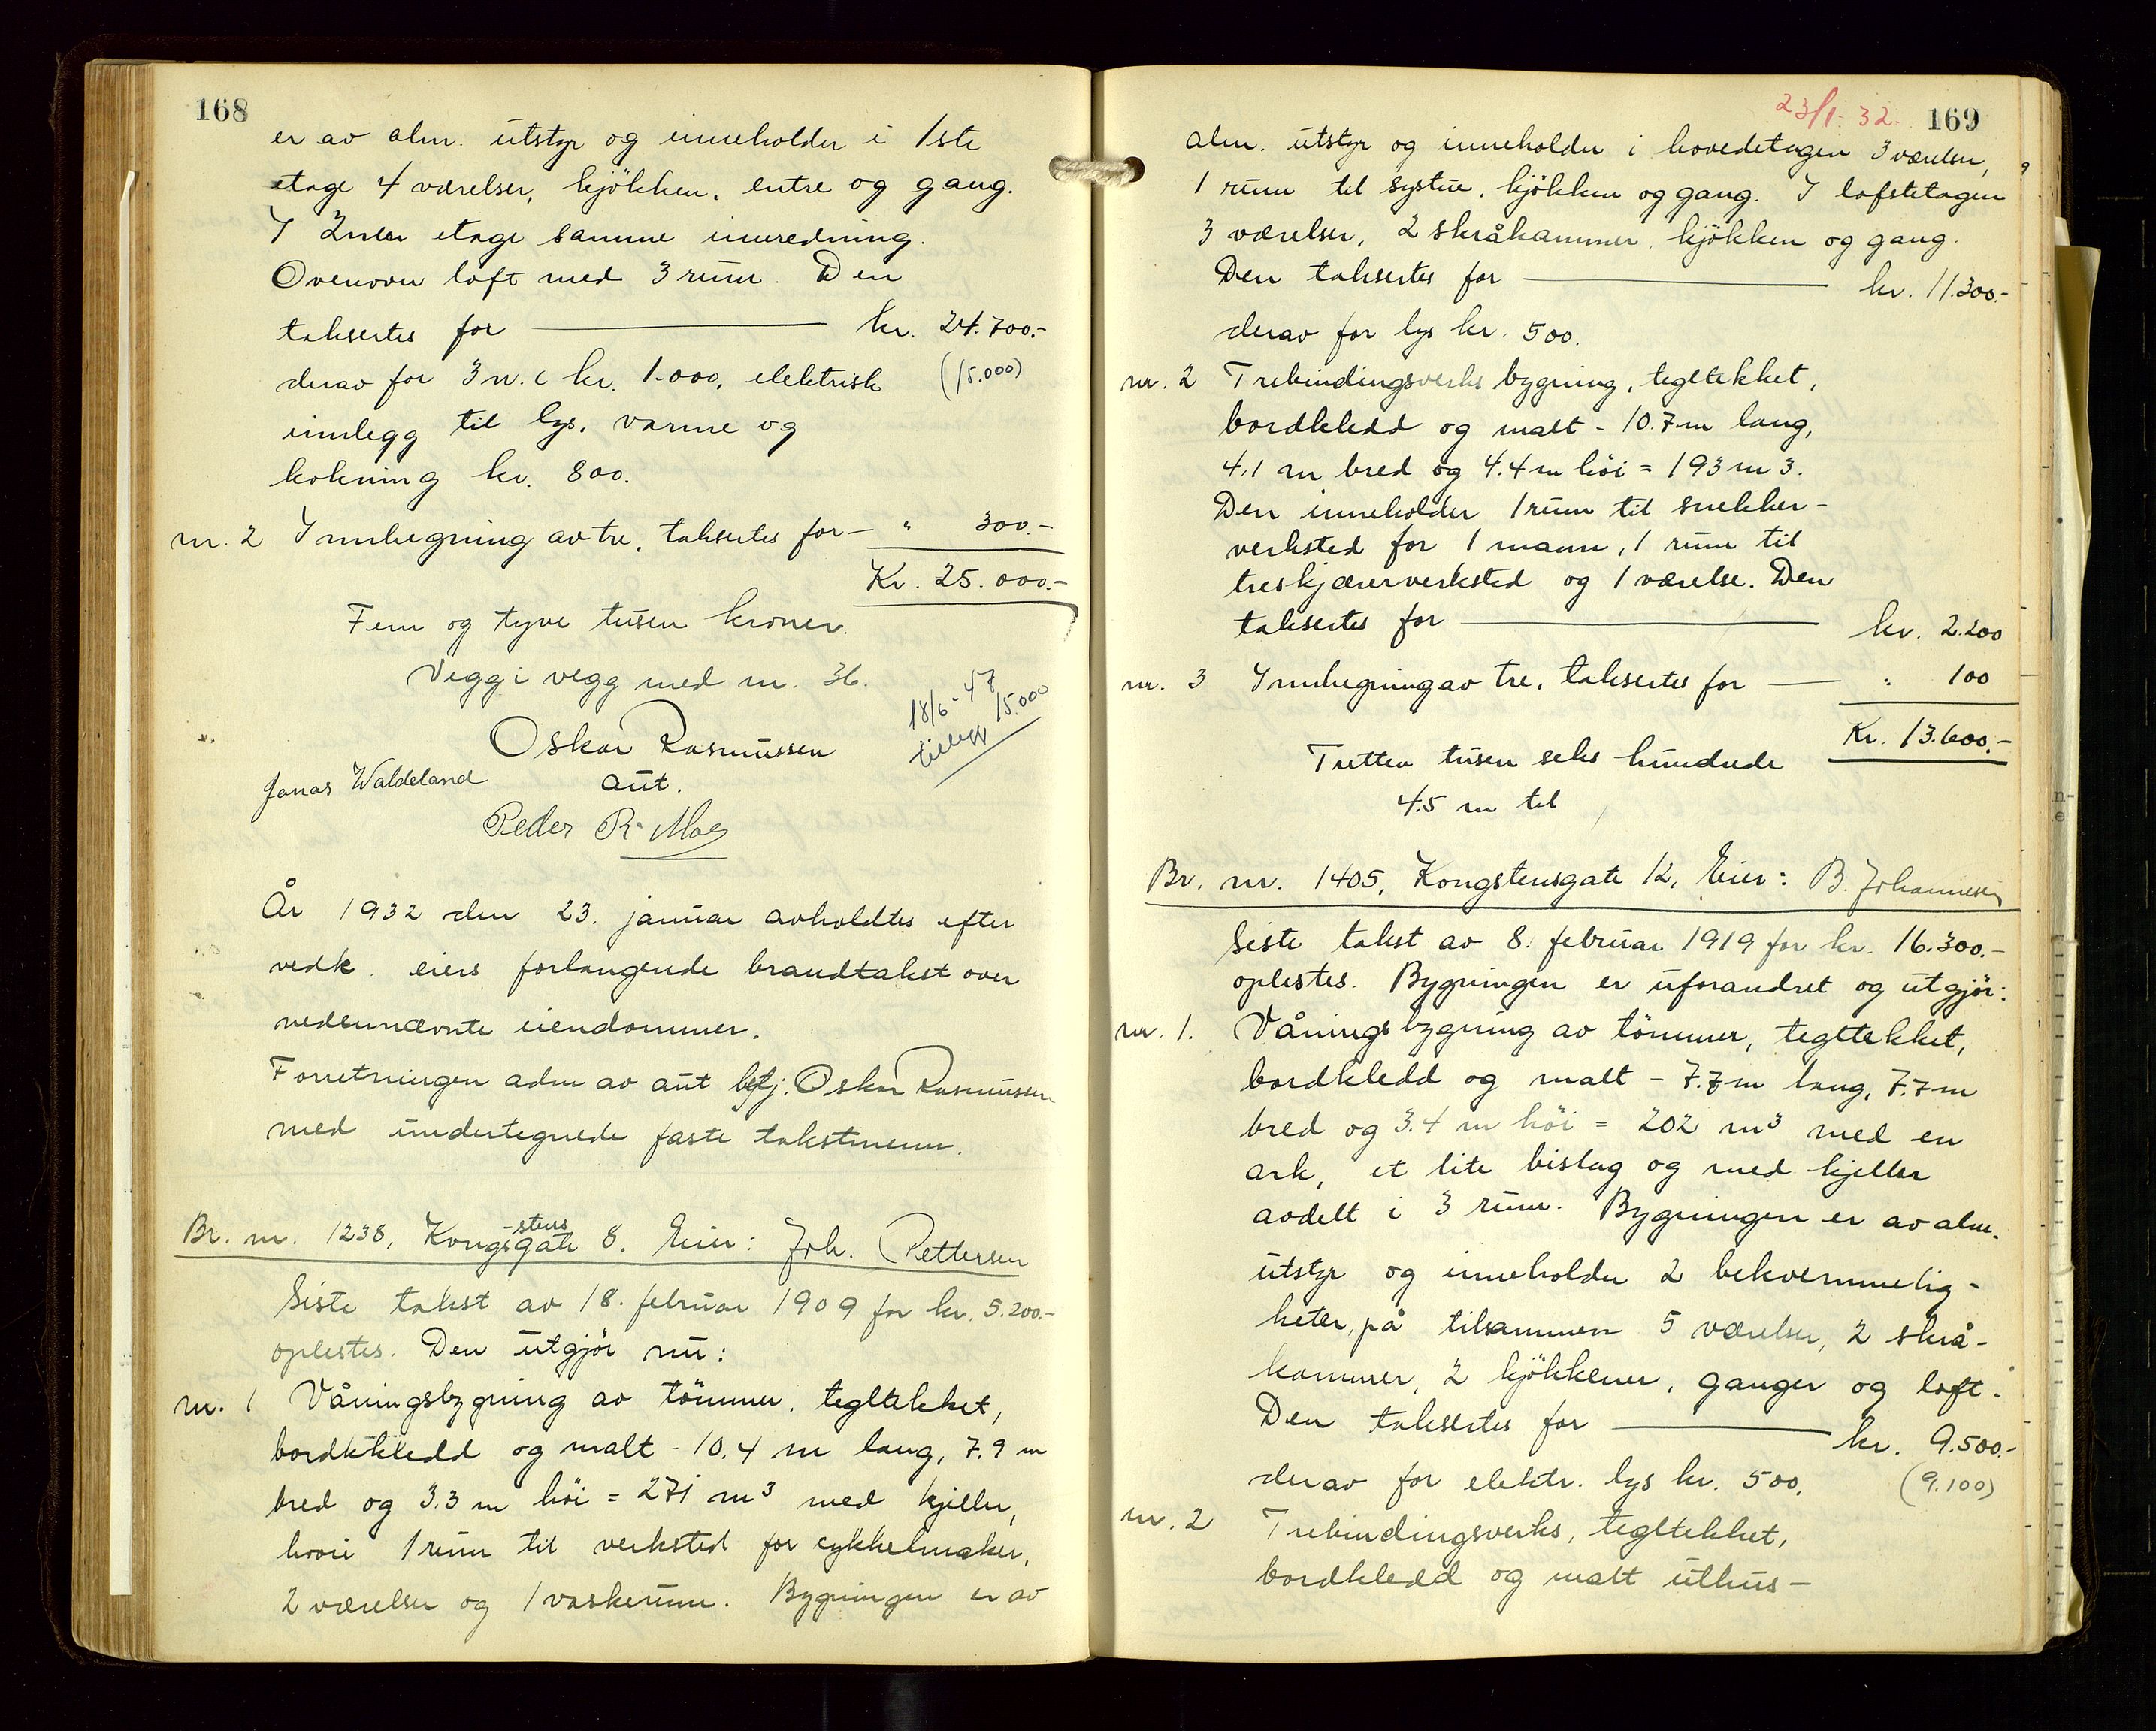 168
er av alm. utstyr og inneholder i 1ste
etage 4 værelser, kjökken, entre og gang.
I 2nen etage samme innredning.
Ovenover loft med 3 rum. Den
taksertes for — kr. 24.700.-
derav for 3 w.c kr. 1.000, elektrisk (15.000)
innlegg til lys, varme og
kokning kr. 800.
nr. 2 Innhegning av tre, taksertes for — " 300.-
Kr. 25.000.-
Fem og tyve tusen kroner.
Vegg i vegg med nr. 36.
18/6-47
tillegg 15.000
Oskar Rasmussen
Jonas Waldeland aut.
Peder R. Moe
År 1932 den 23. januar avholdtes efter
vedk. eiers forlangende brandtakst over
nedennævnte eiendommer.
Forretningen adm av aut bstj. Oskar Rasmussen
med undertegnede faste takstmenn.
Br. nr. 1238, Kongs-stensgate 8. Eier: Joh. Pettersen
Siste takst av 18. februar 1909 for kr. 5.200.-
oplestes. Den utgjör nu:
nr. 1 Våningsbygning av tömmer, tegltekket,
bordkledd og malt - 10.4 m lang, 7.9 m
bred og 3.3 m höi = 271 m3 med kjeller,
hvori 1 rum til verksted for cykkelmaker,
2 værelser og 1 vaskerum. Bygningen er av
23/1-32. 169
alm. utstyr og inneholder i hovedetagen 3 værelser,
1 rum til systue, kjökken og gang. I loftstetagen
3 værelser, 2 skråkammer, kjökken og gang.
Den taksertes for — kr. 11.300.-
derav for lys kr. 500.
nr. 2 Trebindingsverks bygning, tegltekket,
bordkledd og malt - 10.7 m lang,
4,1 m bred og 4.4 m höi = 193 m3.
Den inneholder 1 rum til snekker-
verksted for 1 mann, 1 rum til
treskjærerverksted og 1 værelse. Den
taksertes for — kr. 2.200
nr. 3 Innhegning av tre, taksertes for — " 100
Kr. 13.600.-
Tretten tusen seks hundrede
4.5 m til
Br. nr. 1405, Kongstensgate 12, Eier: B. Johannesen
Siste takst av 8. februar 1919 for kr. 16.300.-
oplestes. Bygningen er uforandret og utgjör:
nr. 1. Våningsbygning av tömmer, tegltekket,
bordkledd og malt - 7.7 m lang, 7.7 m
bred og 3.4 m höi = 202 m3 med en
ark, et lite bislag og med kjeller
avdelt i 3 rum. Bygningen er av alm.
utstyr og inneholder 2 bekvemmelig-
heter, på tilsammen 5 værelser, 2 skrå-
kammer, 2 kjökkener, ganger og loft.
Den taksertes for — kr. 9.500.-
derav for elektr. lys kr. 500. (9.100)
nr. 2 Trebindingsverks, tegltekket,
bordkledd og malt uthus-